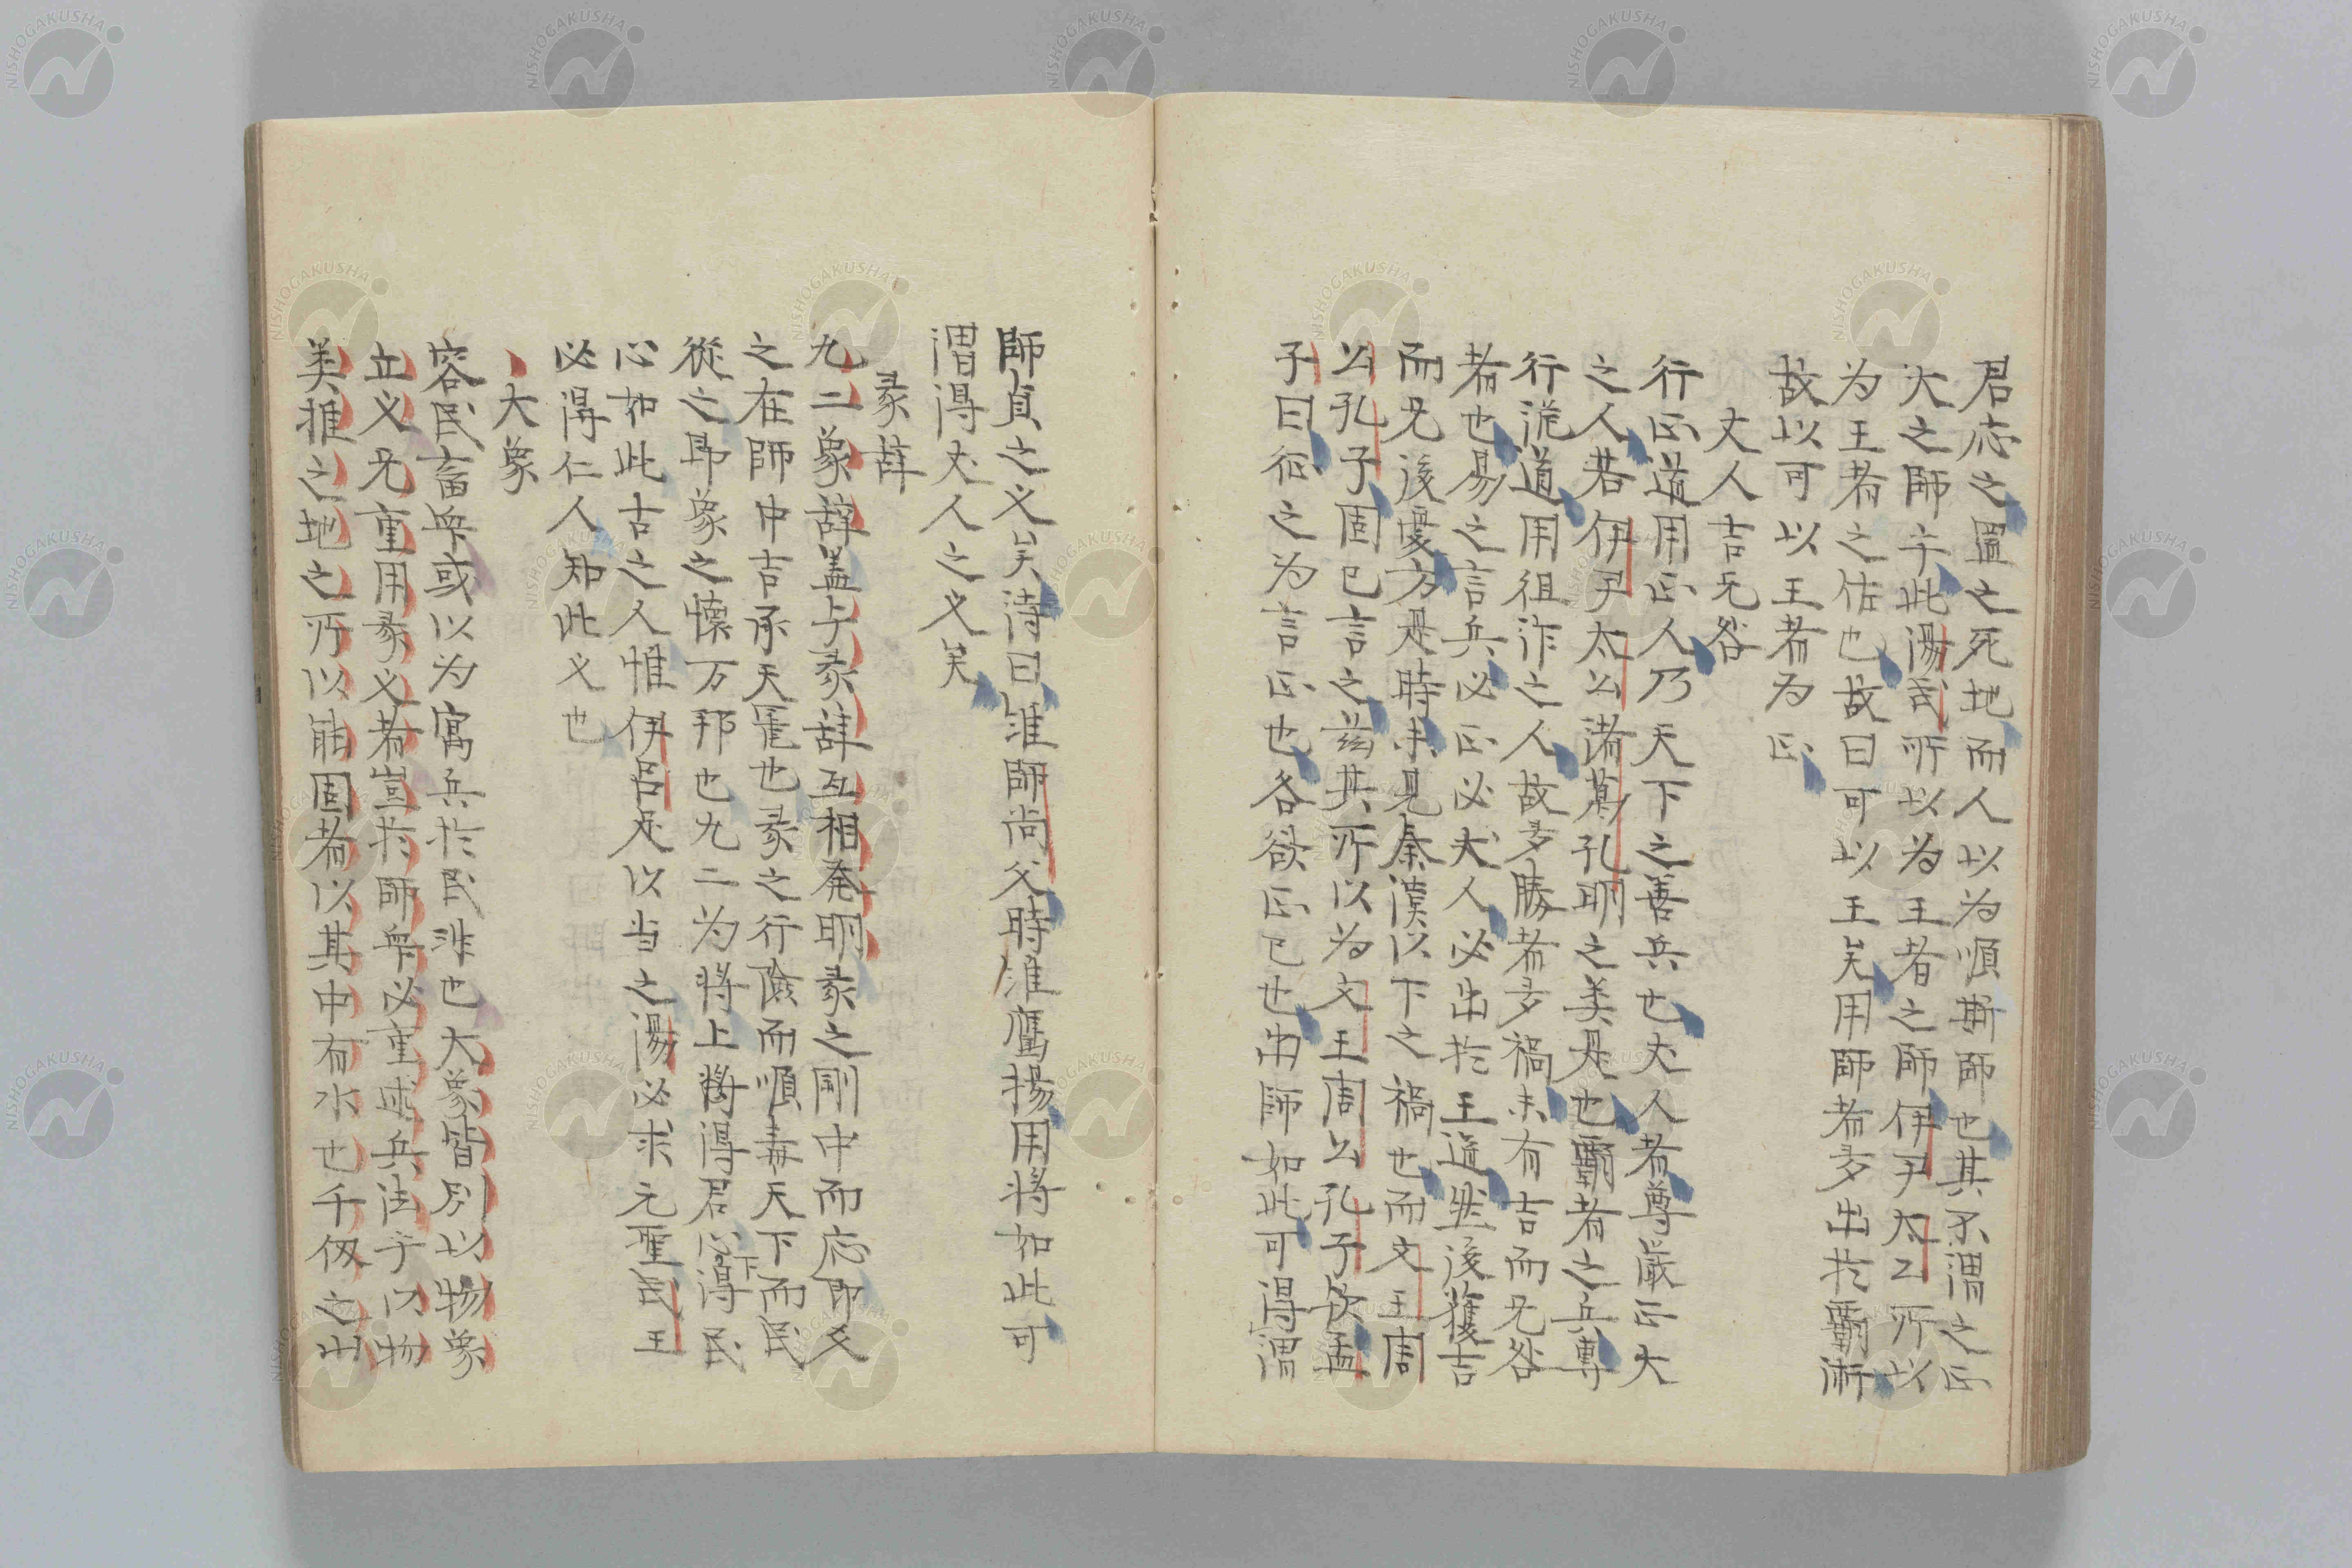 君応之置之死地而人以为順斯師也其不謂之正
大之師乎此湯武所以为王者之師伊尹太公所以
为王者之佐也故曰可以王矣用師者多出於覇術
故以可以王者为正
丈人吉无咎
行正道用正人乃天下之善兵也丈人者尊厳正大
之人若伊尹太公諸葛孔明之美是也覇者之兵専
行詭道用徂詐之人故多勝者多禍未有吉而无咎
者也易之言兵必正必丈人必出於王道然後獲吉
而无後憂方是時未見秦漢以下之禍也而文王周
公孔子固已言之茲其所以为文王周公孔子欤孟
子曰征之为言正也各欲正已也出師如此可得謂
師貞之义矣詩曰維師尚父時維鷹揚用将如此可
謂得丈人之义矣
彖辞
九二象辞盖与彖辞互相発明彖之剛中而応即爻
之在師中吉承天寵也彖之行険而順毒天下而民
從之即象之懐万邦也九二为将上得君心下得民
心如此古之人惟伊呂足以当之湯必求元聖武王
必得仁人知此义也
大象
容民畜衆或以为寓兵於民非也大象皆別以物象
立义无重用彖义者豈於師衆必重述兵法乎以物
美推之地之所以能固者以其中有水也千仭之山
NISHOGAKUSHA